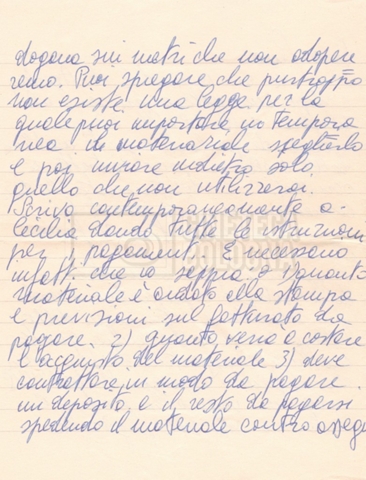 dogana sui metri che non adopere
remo. Puoi spiegare che purtroppo
non esiste una legge per la
quale puoi importare in tempora
nea il materiale sceglierlo
e poi inviare indietro solo
quello che non utilizzerai.
Scrivo contemporaneamente a
Cecilia dando tutte le istruzioni
per i pagamenti. È necessario
infatti che io sappia: 1) quanto
materiale è andato alla stampa
e previsioni sul fatturato da
pagare. 2) quanto verrà a costare
l'acquisto del materiale 3) deve
contrattare in modo da pagare
un deposito e il resto da pagarsi
spedendo il materiale contro asseg